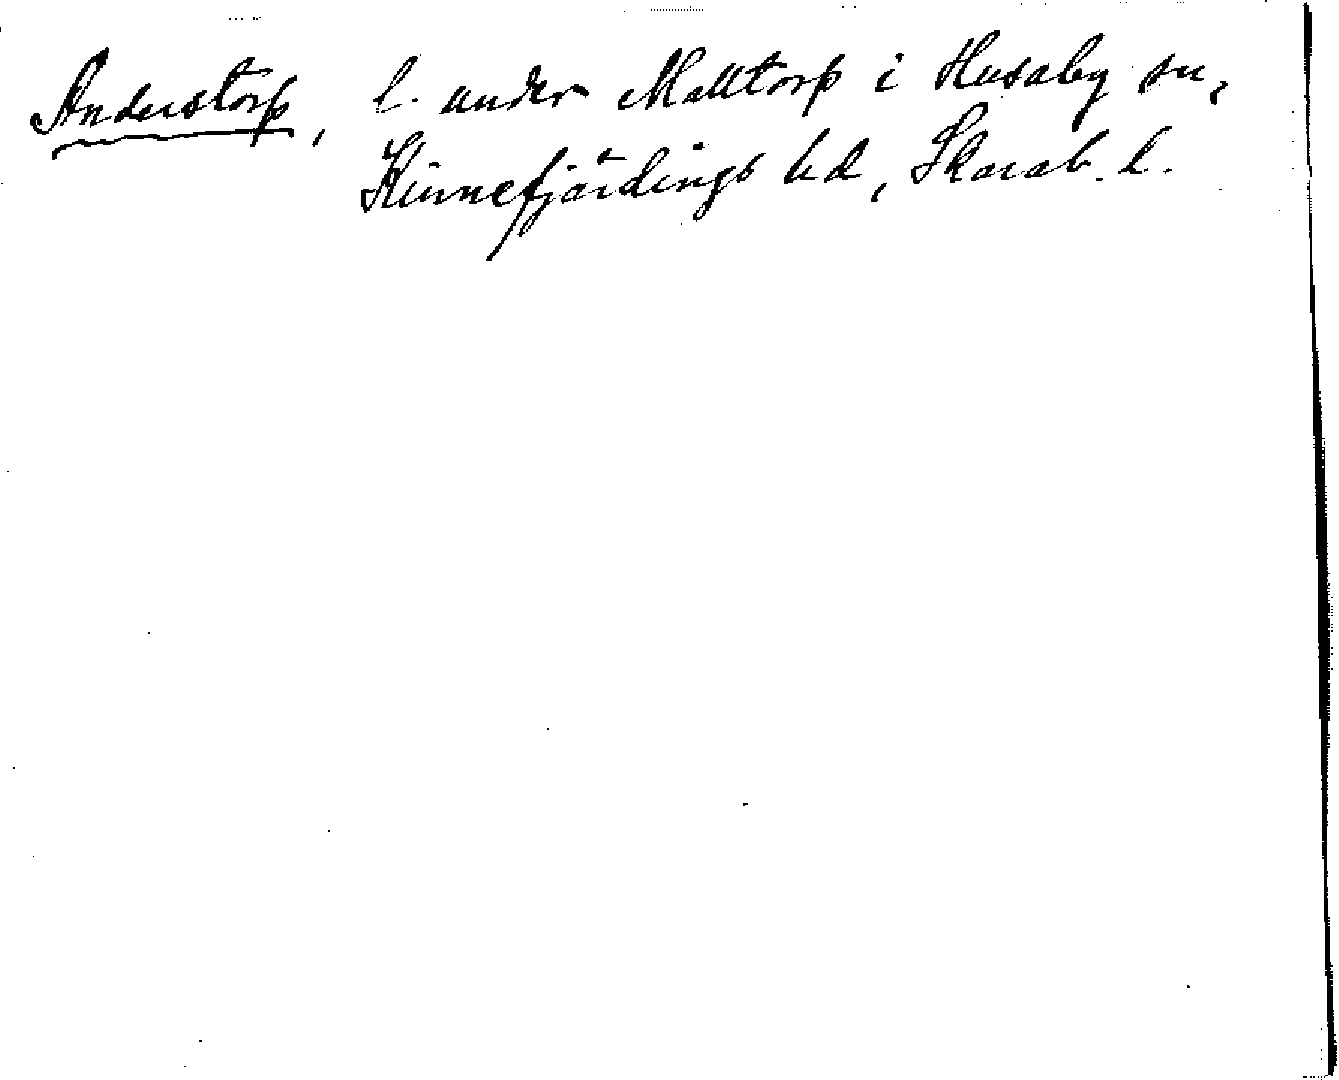 Anderstorp, l. under Malltorp i Husaby sn,
Kinnefjärdings hd, Skarab. l.